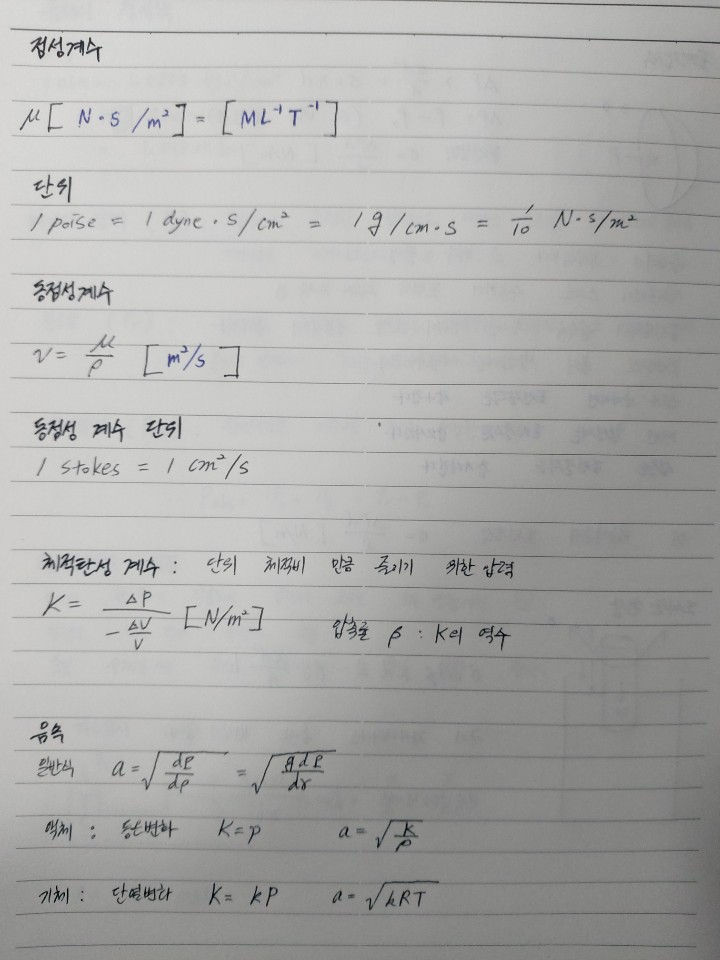 점성계수
μ [ N·S /m² ] = [ ML⁻¹T⁻¹ ]
단위
1 poise = 1 dyne · s/cm² = 1g/cm·s = 1/10 N·s/m²
동점성계수
ν = μ/ρ [ m²/s ]
동점성 계수 단위
1 stokes = 1 cm²/s
체적탄성 계수 : 단위 체적비 만큼 줄이기 위한 압력
K = ΔP / (-ΔV/V) [N/m²] 압축률 β : K의 역수
음속
일반식 a = √(dP/dρ) = √(g dP/dr)
액체 : 등온변화 K=p a = √(k/ρ)
기체 : 단열변화 K= kP a = √kRT